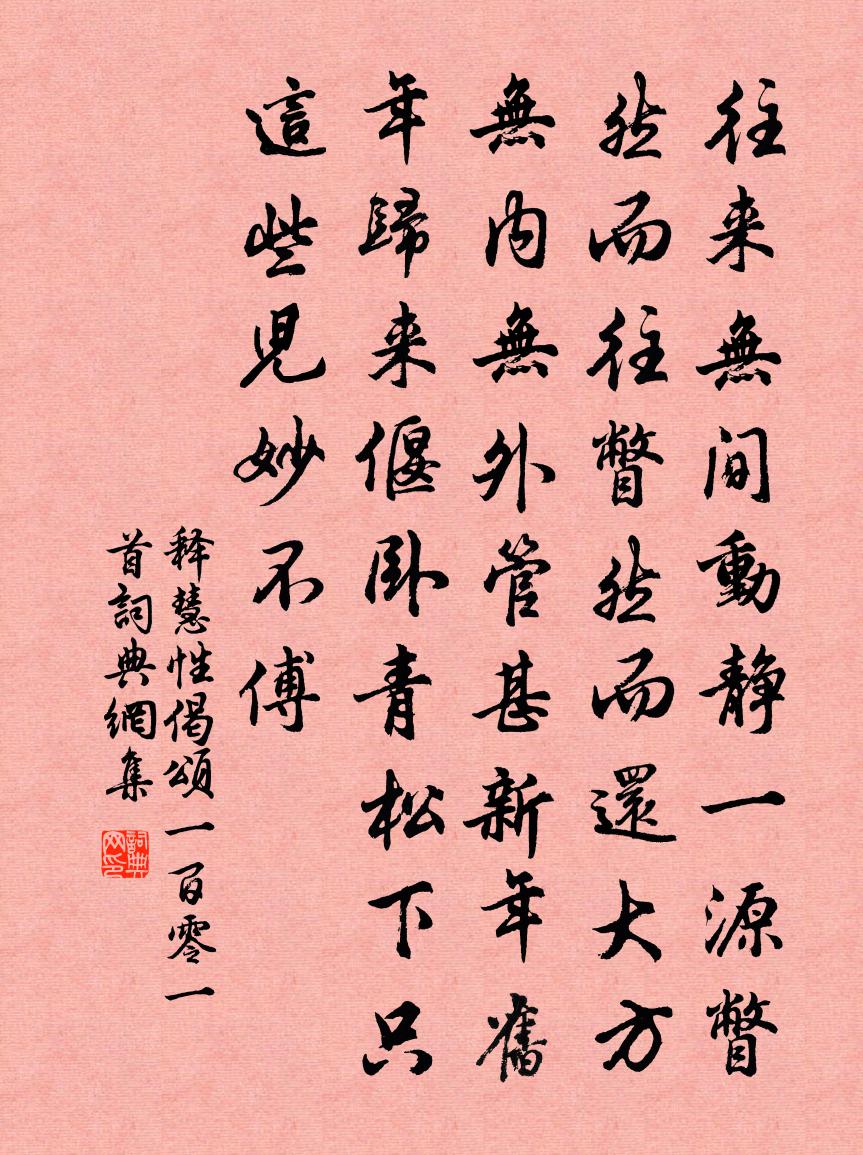 往来無间動静一源瞥
然而往瞥然而還大方
無内無外管甚新年舊
年歸来偃卧青松下只
這些兒妙不傅
释慧性偈頌一百零一
首詞典網集
詞典网印